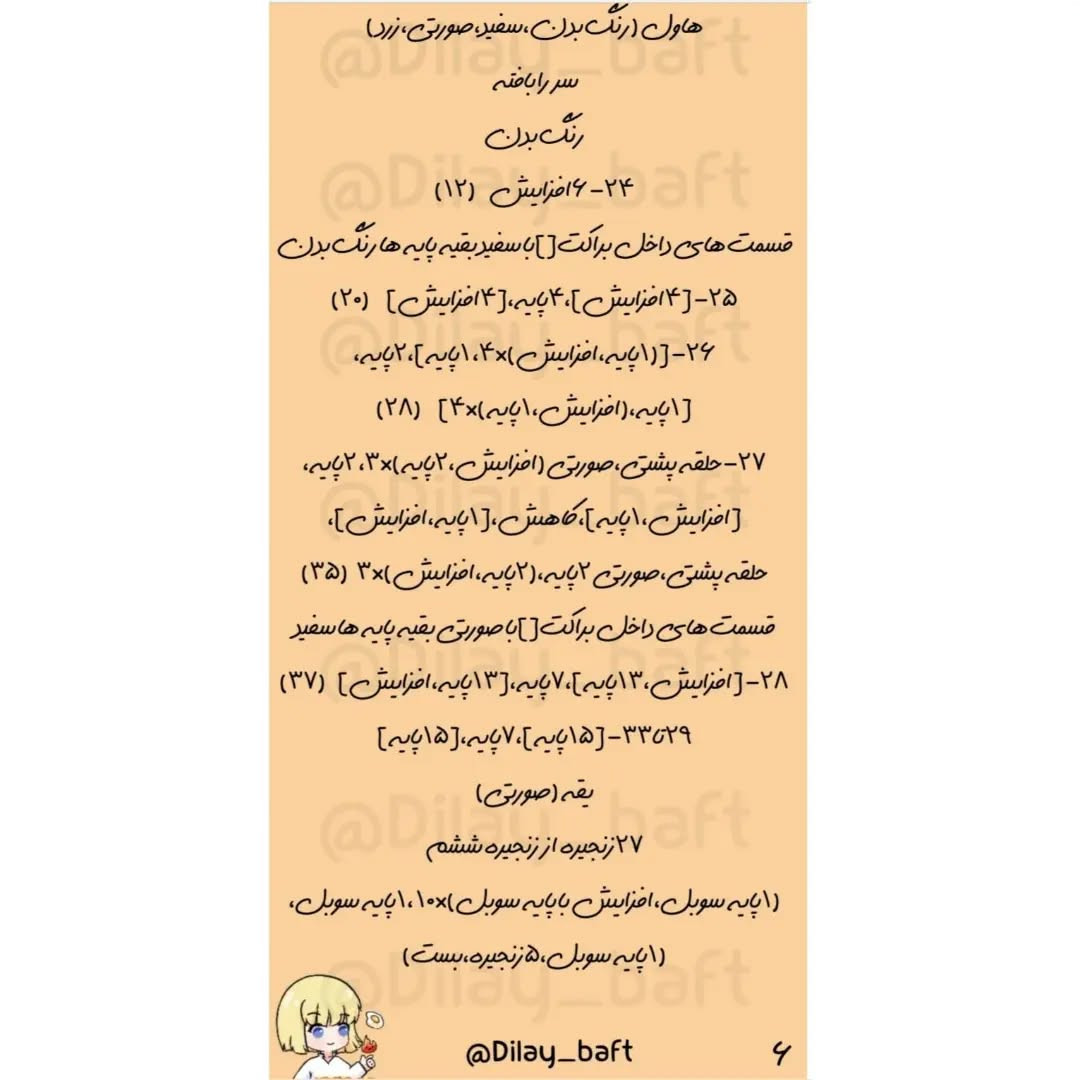 هاول (رنگ بدن، سفید، صورتی، زرد)
سر را بافته
رنگ بدن
۲۴- ۶افزایش (۱۲)
قسمت های داخل براکت[]با سفید بقیه پایه ها رنگ بدن
۲۵-[۴افزایش]،۴پایه،[۴افزایش] (۲۰)
۲۶-[(۱پایه،افزایش)×۴،۱پایه]،۲پایه،
[۱پایه،(افزایش،۱پایه)×۴] (۲۸)
۲۷-حلقه پشتی،صورتی (افزایش،۲پایه)×۳،۲پایه،
[افزایش،۱پایه]،کاهش،[۱پایه،افزایش]،
حلقه پشتی،صورتی ۲پایه،(۲پایه،افزایش)×۳ (۳۵)
قسمت های داخل براکت[]با صورتی بقیه پایه ها سفید
۲۸-[افزایش،۱۳پایه]،۷پایه،[۱۳پایه،افزایش] (۳۷)
۲۹تا۳۳-[۱۵پایه]،۷پایه،[۱۵پایه]
یقه (صورتی)
۲۷زنجیره از زنجیره ششم
(۱پایه سوبل،افزایش با پایه سوبل)×۱۰،۱پایه سوبل،
(۱پایه سوبل،۵زنجیره،بست)
@Dilay_baft
۶